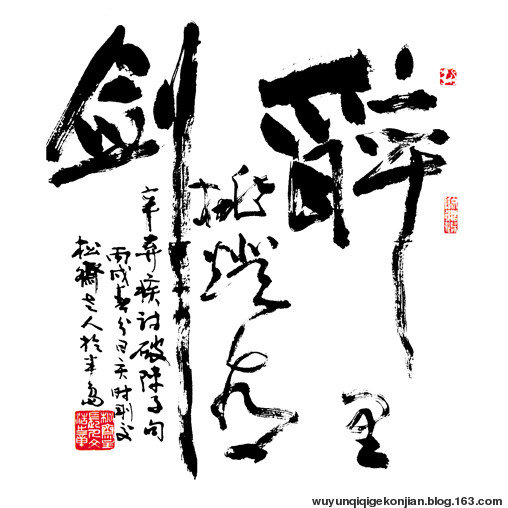 醉里
挑燈看
剑
辛弃疾词破阵子句
丙戌春分日亥时刚交
松齋老人於半島
wuyunqiqigekonjian.blog.163.com